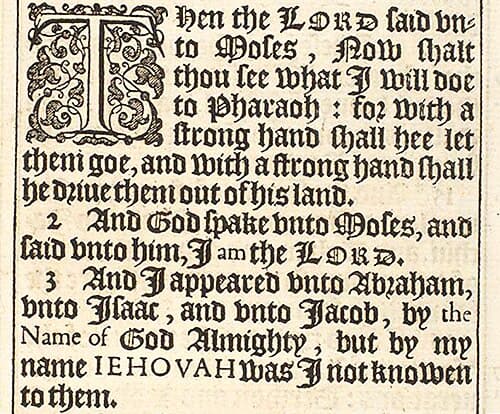 Then the LORD said vn-
to Moses, Now shalt
thou see what I will doe
to Pharaoh: for with a
strong hand shall hee let
them goe, and with a strong hand shall
he driue them out of his land.
2 And God spake vnto Moses, and
said vnto him, I am the LORD.
3 And I appeared vnto Abraham,
vnto Isaac, and vnto Jacob, by the
Name of God Almighty, but by my
name IEHOVAH was I not knowen
to them.